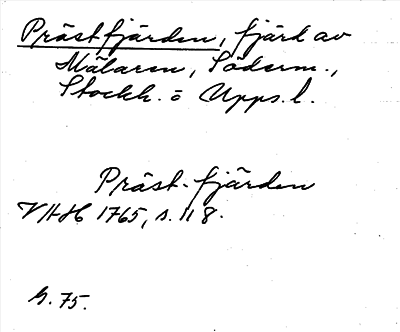 Prästfjärden, fjärd av
Mälaren, Söderm.,
Stockh. o Upps. l.
Präst-fjärden
VHH 1765, s. 118.
G. 75.